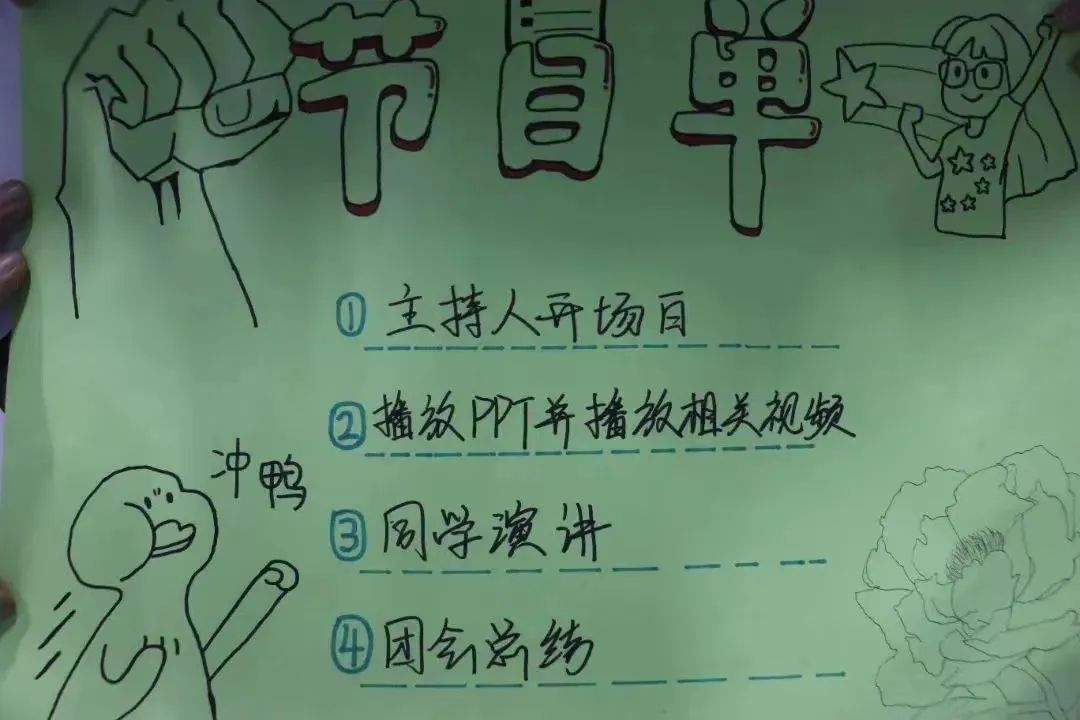 节目单
① 主持人开场白
② 播放PPT并播放相关视频
冲鸭
③ 同学演讲
④ 团会总结